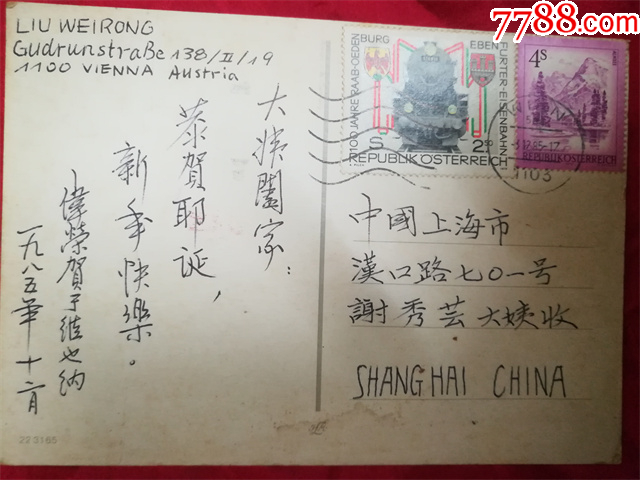 7788.com
LIU WEIRONG
Gudrunstraße 138/II/19
1100 VIENNA Austria
大姨闔家：
恭賀耶诞，
新年快樂。
偉榮賀于維也納
一九八五年十二月
100 JAHRE RAAB-OEDENBURG
EBENFURTER-EISENBAHN
S 2.50
REPUBLIK ÖSTERREICH
4S
REPUBLIK ÖSTERREICH
1103
中國上海市
漢口路七〇一号
謝秀芸大姨收
SHANGHAI CHINA
22 3165